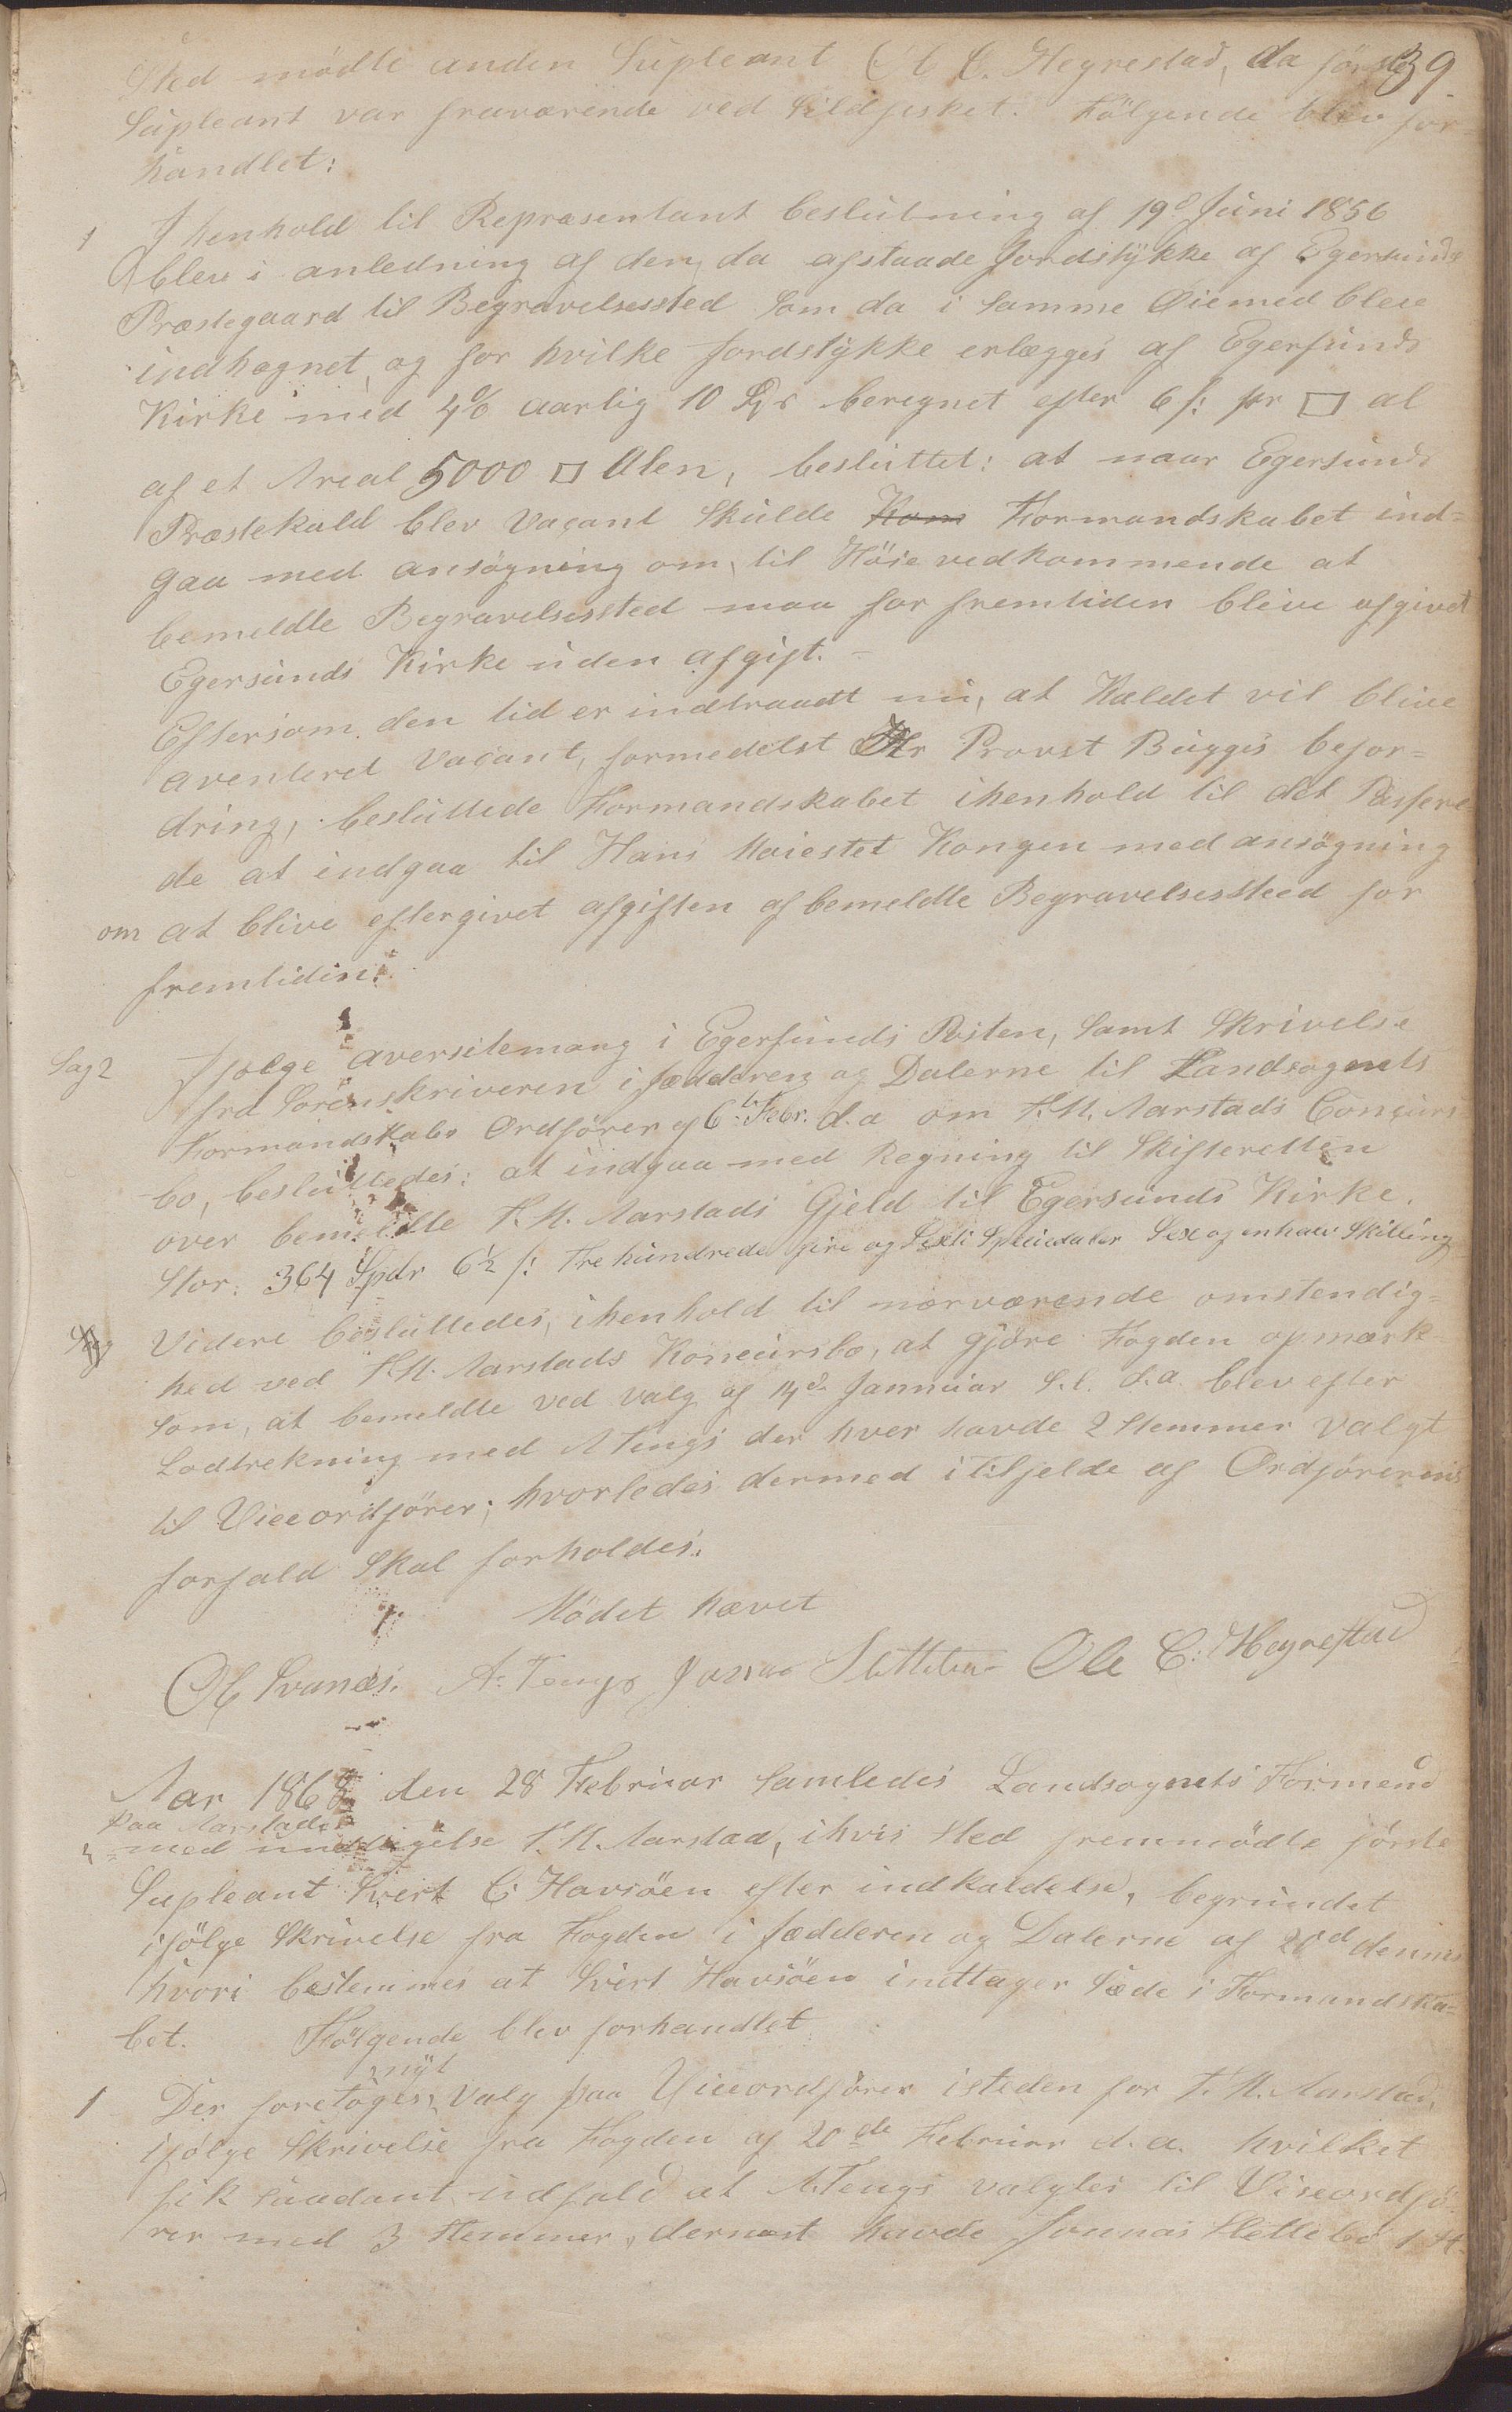 39
Sted mödte anden Supleant Ole C. Hegrestad, da förste
Supleant var fraværende ved Sildfisket. Fölgende blev for-
handlet:
1 I henhold til Repræsentant beslutning af 19d Juni 1856
blev i anledning af den da afstaade Jordstykke af Egersunds
Præstegaard til Begravelsessted som da i samme Øiemed blev
indhegnet, og for hvilke Jordstykke erlægges af Egersunds
Kirke med 4% aarlig 10 Spd beregnet efter 6 s: pr □ al
af et Areal 5000 □ Alen, besluttet: at naar Egersunds
Præstekald blev Vacant skulde Kom Formandskabet ind-
gaa med ansögning om, til Höievedkommende at
bemeldte Begravelsessted maa for fremtiden blive afgivet
Egersunds Kirke uden afgift. -
Eftersom den tid er indtraadt nu, at Kaldet vil blive
aventeret Vacant, formedelst Hr Provst Bugges befor-
dring, besluttede Formandskabet ihenhold til det Passere
de at indgaa til Hans Maiestet Kongen med ansögning
om at blive eftergivet afgiften af bemeldte Begravelsessteed for
fremtiden.
Sag 2 Ifølge avertitement i Egersunds Posten, samt Skrivelse
fra Sorenskriveren i Jædderen og Dalerne til Landsognets
Formandskabs Ordförer af 6te Febr. d.a om T.M. Aarstads Concurs
bo, besluttedes: at indgaa med Regning til Skifteretten
over bemeldte T.M. Aarstads Gjeld til Egersunds Kirke.
Stor: 364 Spdr 6½ s: Tre hundrede fire og Sexti Speciedaler Sex og en halv Skilling
Videre besluttedes, ihenhold til nærværende omstendig-
hed ved T.M. Aarstads Koncursbo, at gjöre Fogden opmærk-
som, at bemeldte ved valg af 14d Januar s.l. d.a. blev efter
Lodtrekning med A Tengs der hver havde 2 Stemmer valgt
til Viceordförer; hvorledes dermed i Tilfelde af Ordförerens
forfald skal forholdes.
Mödet hævet
Ol Svanes. A. Tengs Jonas Slettebø Ole C: Hegrestad
Aar 1868 den 28 Februar samledes Landsognets Formend
paa Aarstad
med undtagelse T.M. Aarstad, ihvis Sted fremmödte förste
Supleant Sivert C. Havsöen efter indkaldelse, begrundet
ifölge Skrivelse fra Fogden i Jædderen og Dalerne af 20d dennes
hvori bestemmes at Sivert Havsöen indtager Sæde i Formandska-
bet. Fölgende blev forhandlet
nyt
1 Der foretoges Valg paa Viceordförer isteden for T.M. Aarstad,
ifölge Skrivelse fra Fogden af 20de Februar d.a. hvilket
fik saadant udfald at A. Tengs valgtes til Viseordfö-
rer med 3 Stemmer, dernæst havde Jonnas Slettebö 1 St.